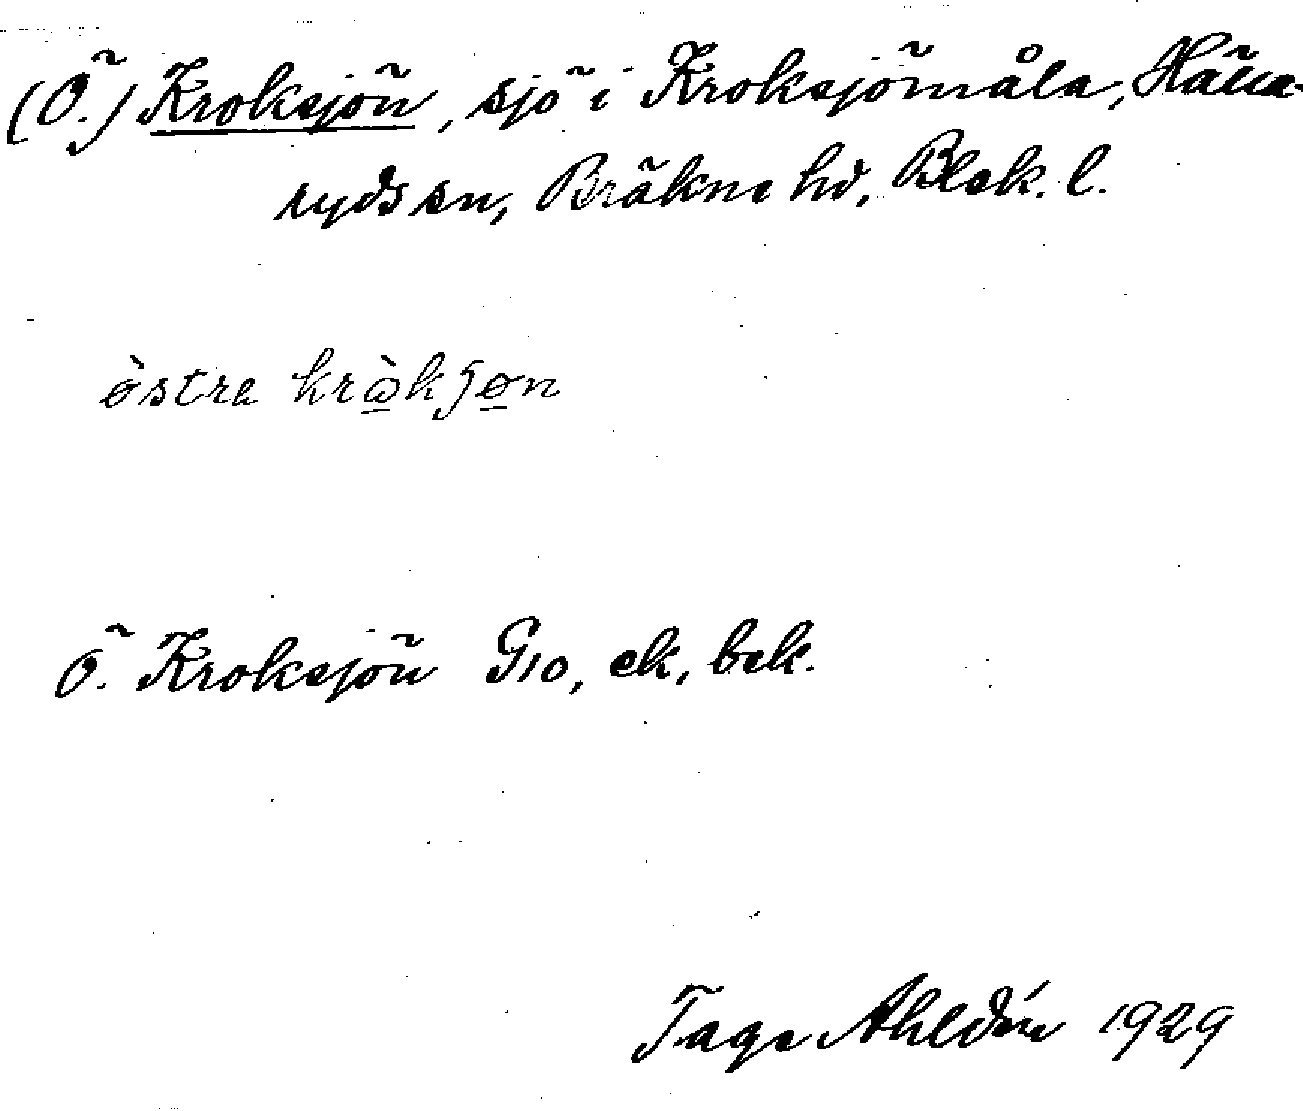 (Ö.) Kroksjön, sjö i Kroksjömåla, Hälla-
ryds sn, Bräkne hd, Blek. l.
òstra kròkjøn
Ö. Kroksjön G10, ek, bek.
Tage Ahldén 1929